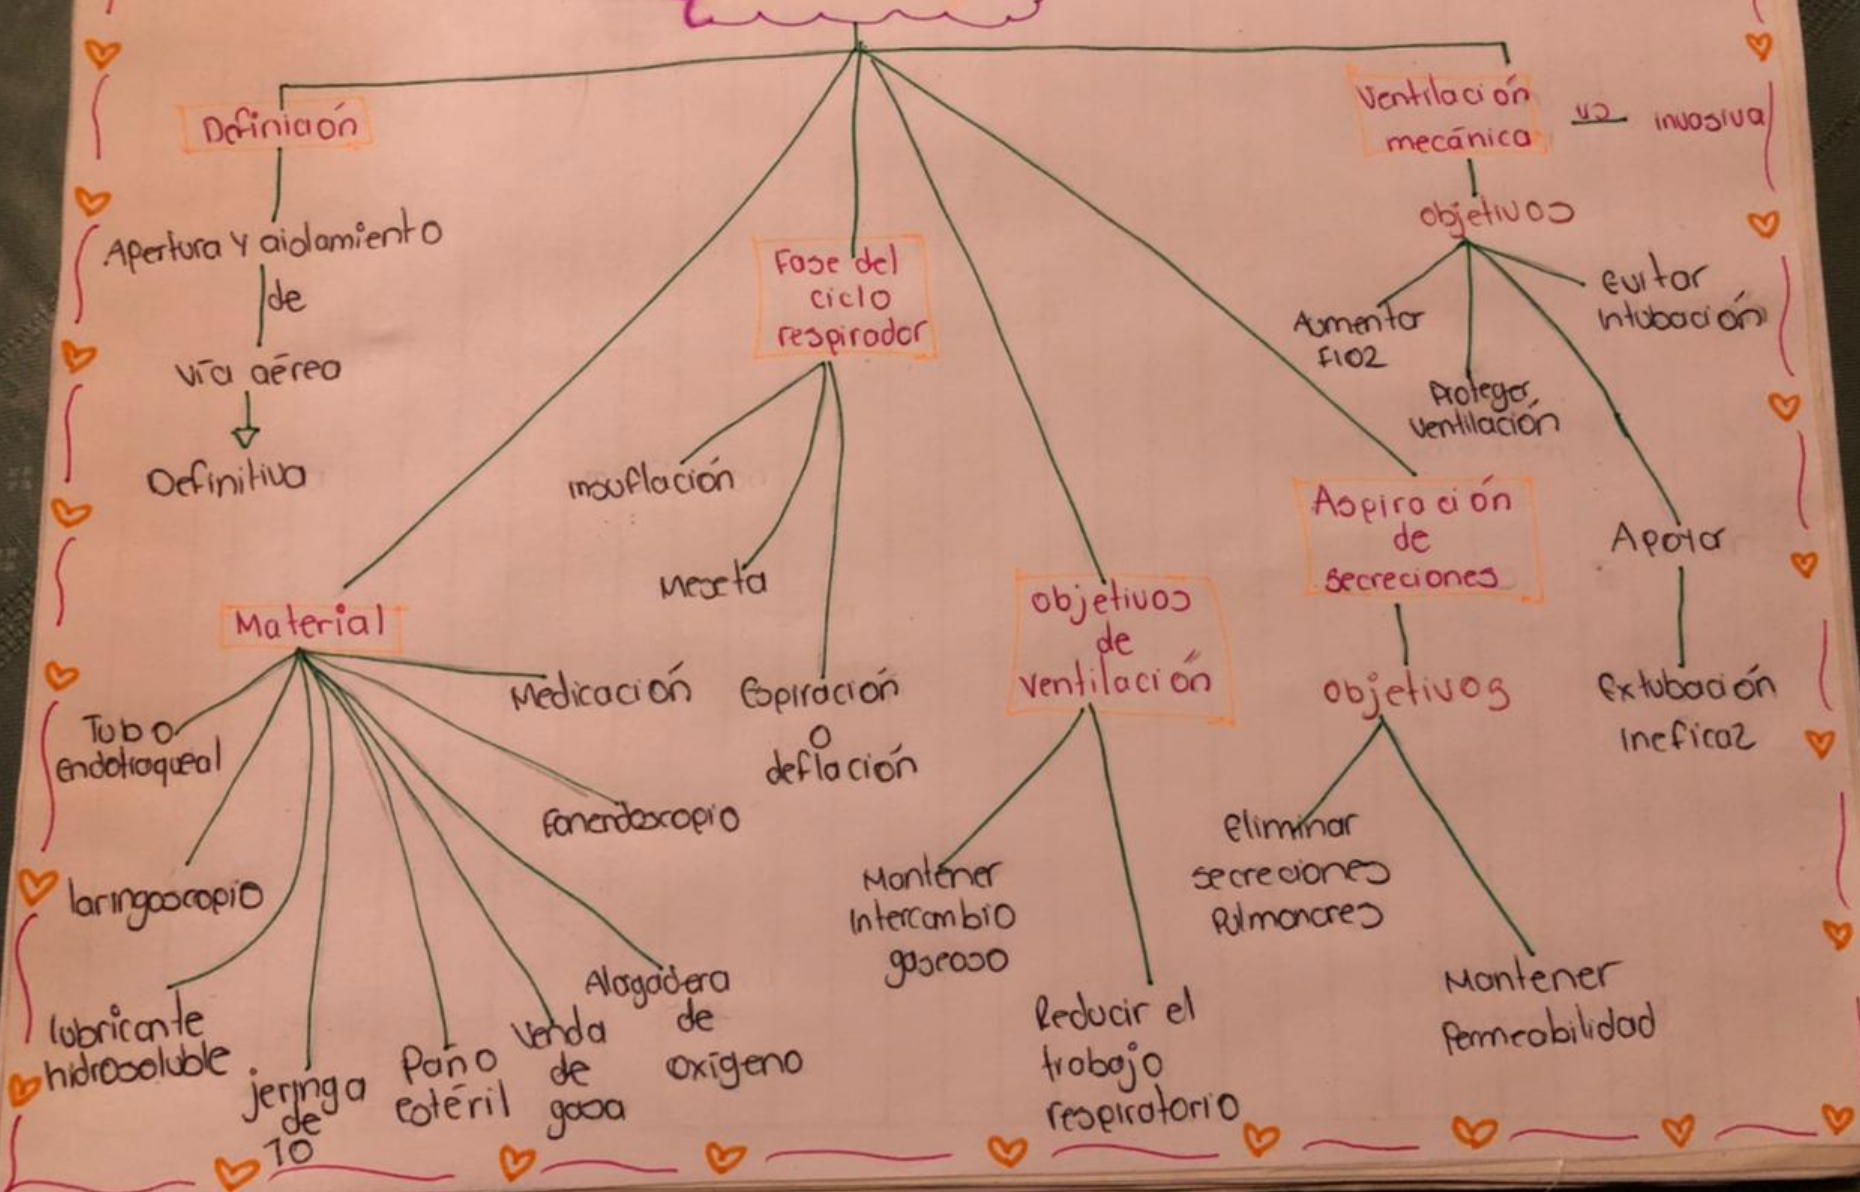 Definición
Apertura y aislamiento
de
vía aérea
Definitiva
Material
Tubo
endotraqueal
laringoscopio
lubricante
hidrosoluble
jeringa
de
10
Paño
estéril
Venda
de
gasa
Alagadera
de
oxígeno
Fonendoscopio
Medicación
Fase del
ciclo
respirador
insuflación
Meseta
Espiración
O
deflación
objetivos
de
ventilación
Mantener
Intercambio
gaseoso
Reducir el
trabajo
respiratorio
Aspiración
de
secreciones
objetivos
eliminar
secreciones
Pulmonares
Mantener
Permeabilidad
Ventilación
mecánica
vs invasiva
objetivos
Aumentar
FIO2
Proteger
ventilación
Apoyar
Extubación
Ineficaz
Evitar
Intubación